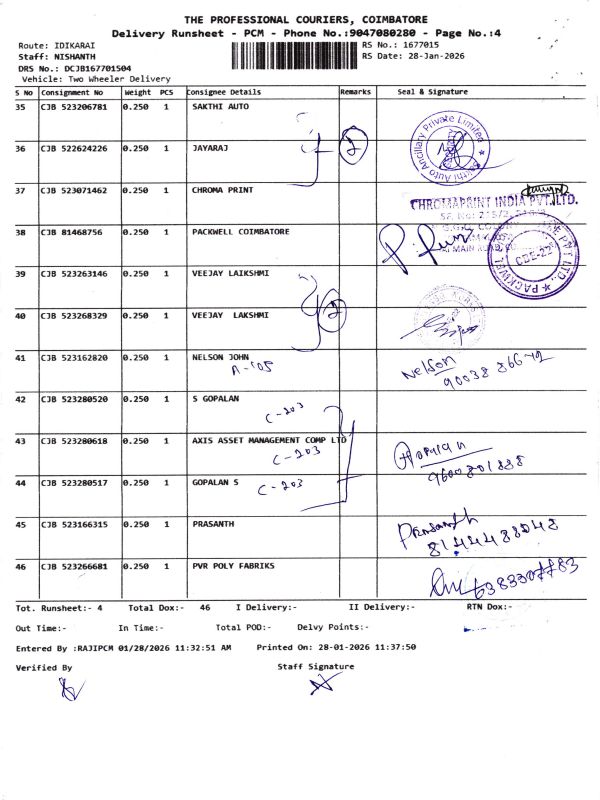 THE PROFESSIONAL COURIERS, COIMBATORE
Delivery Runsheet - PCM - Phone No.:9047080280 - Page No.:4
Route: IDIKARAI
RS No.: 1677015
Staff: NISHANTH
RS Date: 28-Jan-2026
DRS No.: DCJB167701504
Vehicle: Two Wheeler Delivery
S No Consignment No Weight PCS Consignee Details Remarks Seal & Signature
35 CJB 523206781 0.250 1 SAKTHI AUTO
36 CJB 522624226 0.250 1 JAYARAJ 2
37 CJB 523071462 0.250 1 CHROMA PRINT CHROMAPRINT INDIA PVT.LTD.
38 CJB 81468756 0.250 1 PACKWELL COIMBATORE
CBE-22
39 CJB 523263146 0.250 1 VEEJAY LAIKSHMI
40 CJB 523268329 0.250 1 VEEJAY LAKSHMI 2
41 CJB 523162820 0.250 1 NELSON JOHN Nelson
A-105
42 CJB 523280520 0.250 1 S GOPALAN
C-203
43 CJB 523280618 0.250 1 AXIS ASSET MANAGEMENT COMP LTD Gopalan
C-203 9600801888
44 CJB 523280517 0.250 1 GOPALAN S
C-203
45 CJB 523166315 0.250 1 PRASANTH Prasanth
46 CJB 523266681 0.250 1 PVR POLY FABRIKS
Tot. Runsheet:- 4 Total Dox:- 46 I Delivery:- II Delivery:- RTN Dox:-
Out Time:- In Time:- Total POD:- Delvy Points:-
Entered By :RAJIPCM 01/28/2026 11:32:51 AM Printed On: 28-01-2026 11:37:50
Verified By Staff Signature